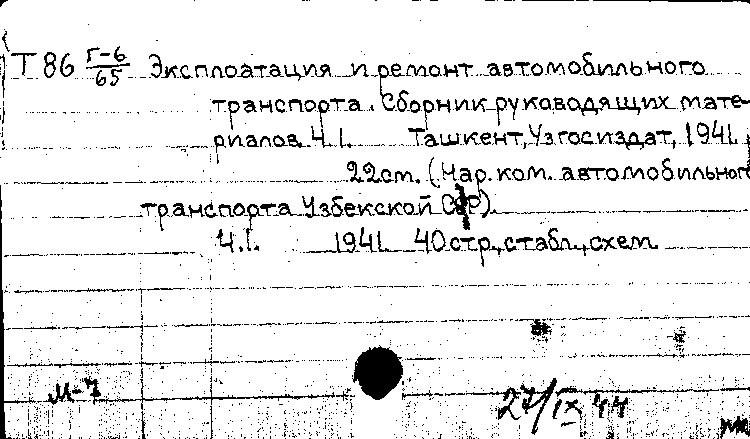 Т 86 Г-6/65 Эксплоатация и ремонт автомобильного
транспорта. Сборник руководящих мате-
риалов. Ч. I. Ташкент, Узгосиздат, 1941.
22 cm. (Нар. ком. автомобильного
транспорта Узбекской ССР).
Ч. I. 1941. 40 стр., с табл., схем.
М-7
27/IX 44